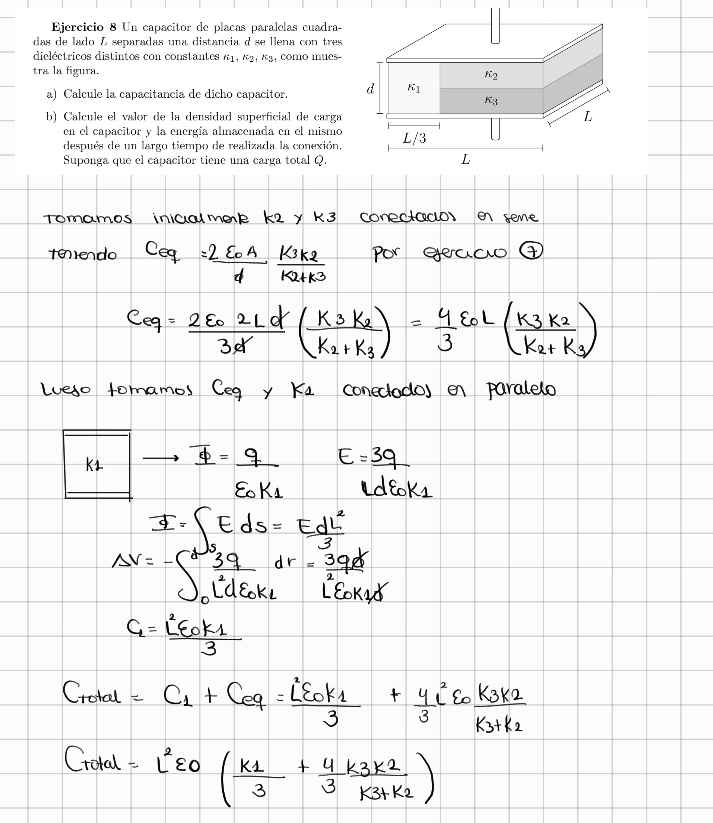 Ejercicio 8 Un capacitor de placas paralelas cuadra-
das de lado L separadas una distancia d se llena con tres
dieléctricos distintos con constantes κ₁, κ₂, κ₃, como mues-
tra la figura.
a) Calcule la capacitancia de dicho capacitor.
b) Calcule el valor de la densidad superficial de carga
en el capacitor y la energía almacenada en el mismo
después de un largo tiempo de realizada la conexión.
Suponga que el capacitor tiene una carga total Q.
d
κ₁
κ₂
κ₃
L/3
L
L
Tomamos inicialmente k2 y k3 conectados en serie
teniendo Ceq = 2 ε0 A / d K3K2 / K2+K3 por ejercicio ⑦
Ceq = 2 ε0 2 L d / 3d (K3 K2 / K2 + K3) = 4/3 ε0 L (K3 K2 / K2 + K3)
Luego tomamos Ceq y K1 conectados en paralelo
K1 → Φ = q / ε0 K1 E = 3q / L d ε0 K1
Φ = ∫s E ds = E d L² / 3
ΔV = - ∫₀ᵈ 3q / L² d ε0 K1 dr = 3qd / L² ε0 K1 d
C1 = L² ε0 K1 / 3
Ctotal = C1 + Ceq = L² ε0 K1 / 3 + 4/3 L² ε0 K3K2 / K3+K2
Ctotal = L² ε0 (K1 / 3 + 4/3 K3K2 / K3+K2)